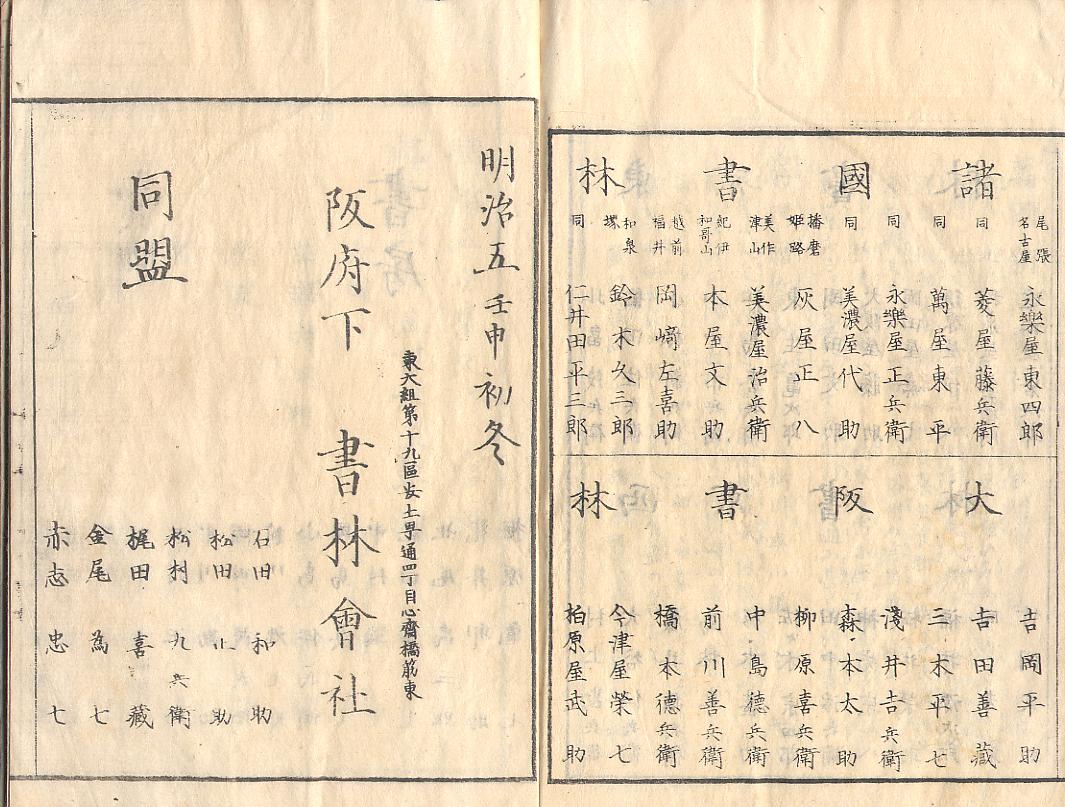 諸國書林
尾張名古屋 永樂屋東四郎
同 菱屋藤兵衛
同 萬屋東平
同 永樂屋正兵衛
同 美濃屋代助
播磨姫路 灰屋正八
美作津山 美濃屋治兵衛
紀伊和哥山 本屋文助
越前福井 岡﨑左喜助
和泉堺 鈴木久三郎
同 仁井田平三郎
大阪書林
吉岡平助
吉田善藏
三木平七
淺井吉兵衛
森本太助
柳原喜兵衛
中島德兵衛
前川善兵衛
橋本德兵衛
今津屋榮七
柏原屋武助
明治五壬申初冬
東大組第十九區安土町通四丁目心齋橋筋東
阪府下 書林會社
石田和助
松田正助
松村九兵衛
梶田喜藏
金尾為七
赤志忠七
同盟